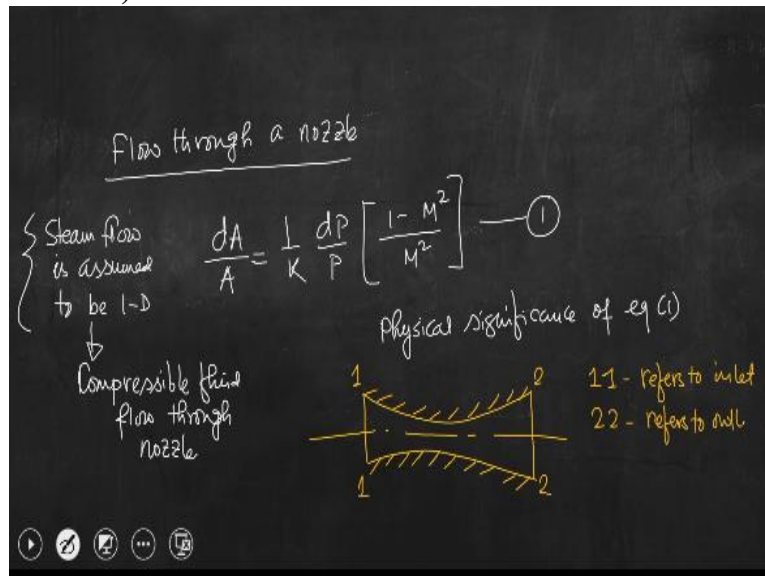 Flow through a nozzle
Steam flow
is assumed
to be 1-D
dA/A = 1/K dP/P [1-M²/M²] — 1
Compressible fluid
flow through
nozzle
Physical significance of eq (1)
1 2
1 2
11 - refers to inlet
22 - refers to